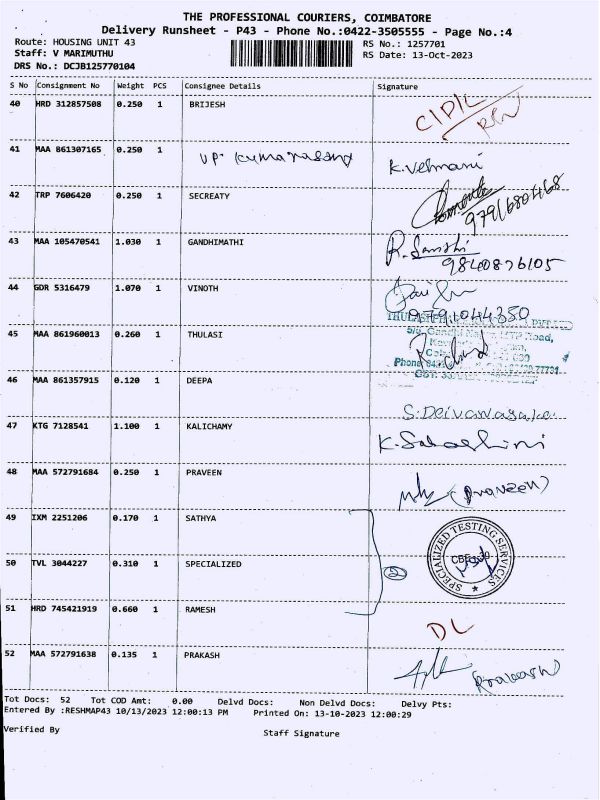 THE PROFESSIONAL COURIERS, COIMBATORE
Delivery Runsheet - P43 - Phone No.:0422-3505555 - Page No.:4
Route: HOUSING UNIT 43 RS No.: 1257701
Staff: V MARIMUTHU RS Date: 13-Oct-2023
DRS No.: DCJB125770104
S No Consignment No Weight PCS Consignee Details Signature
40 HRD 312857508 0.250 1 BRIJESH
41 MAA 861307165 0.250 1 K. Velmani
42 TRP 7606420 0.250 1 SECREATY 9791680468
43 MAA 105470541 1.030 1 GANDHIMATHI
9840876105
44 GDR 5316479 1.070 1 VINOTH
9791044350
45 MAA 861960013 0.260 1 THULASI
46 MAA 861357915 0.120 1 DEEPA
47 KTG 7128541 1.100 1 KALICHAMY
48 MAA 572791684 0.250 1 PRAVEEN (Praveen)
49 IXM 2251206 0.170 1 SATHYA
50 TVL 3044227 0.310 1 SPECIALIZED 2 SPECIALIZED TESTING SERVICES
51 HRD 745421919 0.660 1 RAMESH
DL
52 MAA 572791638 0.135 1 PRAKASH Prakash
Tot Docs: 52 Tot COD Amt: 0.00 Delvd Docs: Non Delvd Docs: Delvy Pts:
Entered By :RESHMAP43 10/13/2023 12:00:13 PM Printed On: 13-10-2023 12:00:29
Verified By Staff Signature